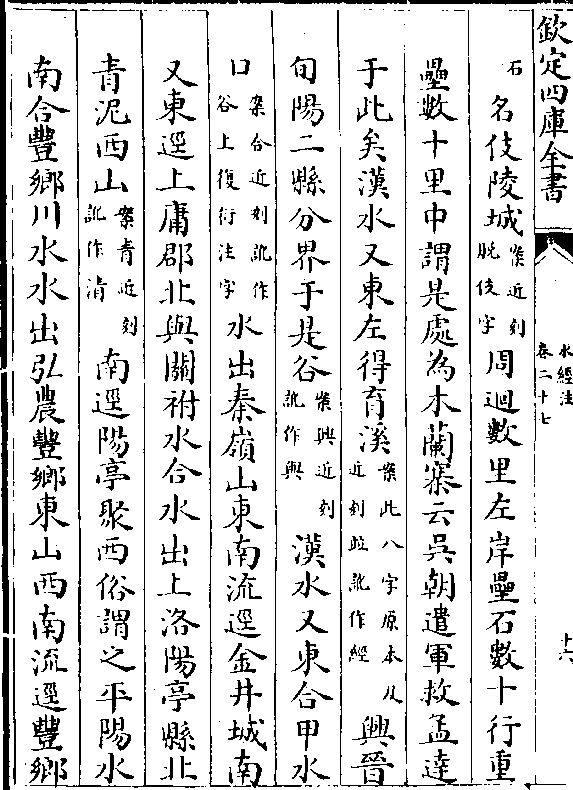 欽定四庫全書
水經注
卷二十七
十六
石名伎陵城案近刻脱伎字周迴數里左岸壘石數十行重
壘數十里中謂是處為木蘭寨云吳朝遣軍救孟達
于此矣漢水又東左得育溪案此八字原本及近刻竝訛作經興晉
旬陽二縣分界于是谷案興近刻訛作與漢水又東合甲水
口案合近刻訛作谷上復衍注字水出秦嶺山東南流逕金井城南
又東逕上庸郡北與關祔水合水出上洛陽亭縣北
青泥西山案青近刻訛作清南逕陽亭聚西俗謂之平陽水
南合豐鄉川水水出弘農豐鄉東山西南流逕豐鄉